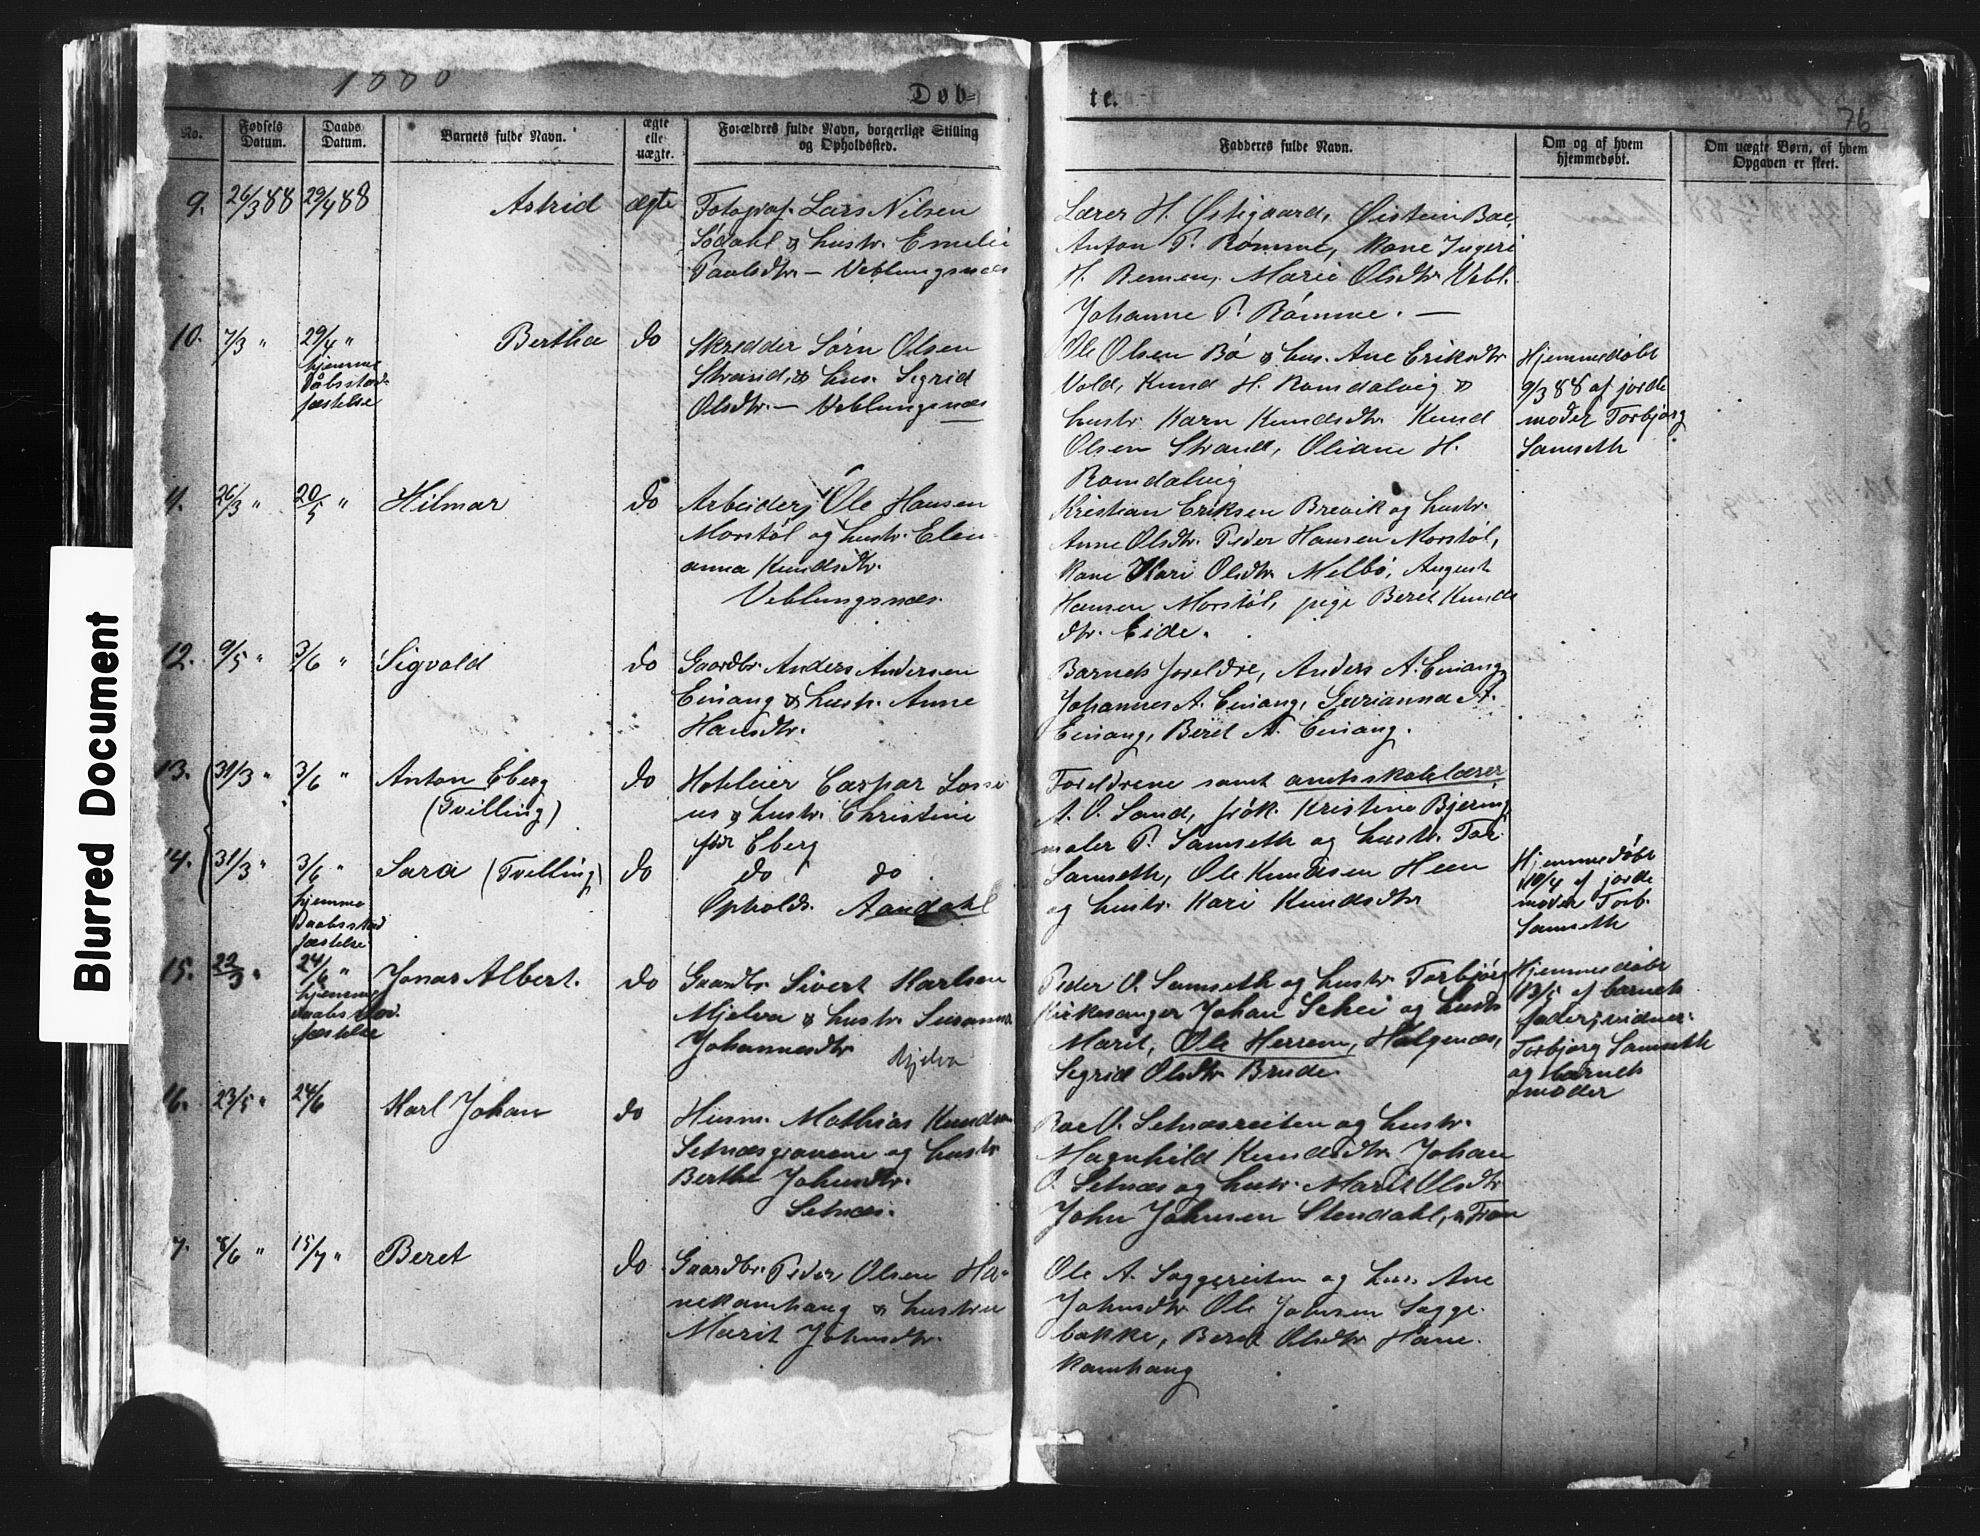 1888
Døb-
te.
76
No.
Fødsels Datum.
Daabs Datum.
Barnets fulde Navn.
ægte elle uægte.
Forældres fulde Navn, borgerlige Stilling og Opholdssted.
Fadderes fulde Navn.
Om og af hvem hjemmedøbt.
Om uægte Børn, af hvem Opgaven er skeet.
9. 26/3 88 29/4 88 Astrid ægte
Fotograf. Lars Nilsen
Sødahl & hustr. Emelie
Paalsdtr. – Veblungsnæs
Lærer H. Østigaard, Øistein Boe,
Anton P. Rømme, Kone Ingeri
H. Remen, Marie Olsdtr. Vebl.
Johanne P. Rømme. –
10. 7/3 " 29/4 " Bertha do
hjemme
Dåbsstad-
fæstelse
Skredder Sørn Olsen
Strand, & hus. Sigrid
Olsdtr. – Veblungsnæs
Ole Olsen Bø & hus. Ane Eriksdtr
Vold, Knud H. Romdalvig &
hustr Karn Knudsdtr. Knud
Olsen Strand, Oliane H.
Romdalvig
Hjemmedøbt
9/3 88 af jorde
moder Torbjørg
Samseth
11. 26/3 " 20/5 " Hilmar do
Arbeider, Ole Hansen
Morstøl og hustr. Elen-
anna Knudsdtr.
Veblungsnæs.
Kristian Eriksen Brevik og hustr.
Anne Olsdtr. Peder Hansen Morstøl,
Kone Kari Olsdtr Melbø, August
Hansen Morstøl, pige Beret Knuds
dtr. Eide.
12. 9/5 " 3/6 " Sigvald do
Gaardbr. Anders Andersen
Einang & hustr. Anne
Hansdtr.
Barnets foreldre, Anders A. Einang,
Johannes A. Einang, Gurianna A.
Einang, Beret A. Einang.
13. 31/3 " 3/6 " Anton Eberg do
(Tvilling)
Hotleier Caspar Lossi
us & hustr. Christine
født Eberg
Foreldrene samt amtsskolelærer
A. O. Sand, frøk. Kristine Bjering,
maler P. Samseth og hustr. Tor.
14. 31/3 " 3/6 " Sara (Tvilling) do
hjemme
Daabsstad
fæstelse
do do
Opholds. Aandahl
Samseth, Ole Knudsen Heen
og hustr. Kari Knudsdtr
Hjemmedøbt
10/4 af jorde
moder Torb.
Samseth
15. 22/3 " 24/6 " Jonas Albert. do
hjemme
daabsstad.
fæstelse
Gaardbr Sivert Karlsen
Mjelva & hustr Susanna
Johannesdtr
Mjelva
Peder O. Samseth og hustr. Torbjørg
Kirkesanger Johan Schei og hustr
Marit, Ole Herrem, Halgenæs,
Sigrid Olsdtr Brude.
Hjemmedøbt
13/5 af barnets
fader, vidner.
Torbjørg Samseth
og barnets
moder
16. 23/5 " 24/6 Karl Johan do
Husm. Mathias Knudsen
Setnæsgravene og hustr
Berthe Johnsdtr.
Setnæs.
Roe O. Setnæsreiten og hustr.
Magnhild Knudsdtr Johan
O. Setnæs og hustr. Marit Olsdtr
John Johnsen Stendahl,
17. 8/6 " 15/7 " Beret do
Gaardbr. Peder Olsen Ha-
nekamhaug & hustrue
Marit Johnsdtr.
Ole A. Soggereiten og hus. Ane
Johnsdtr Ole Johnsen Sogge-
bakke, Beret Olsdtr Hane-
kamhaug
Blurred Document